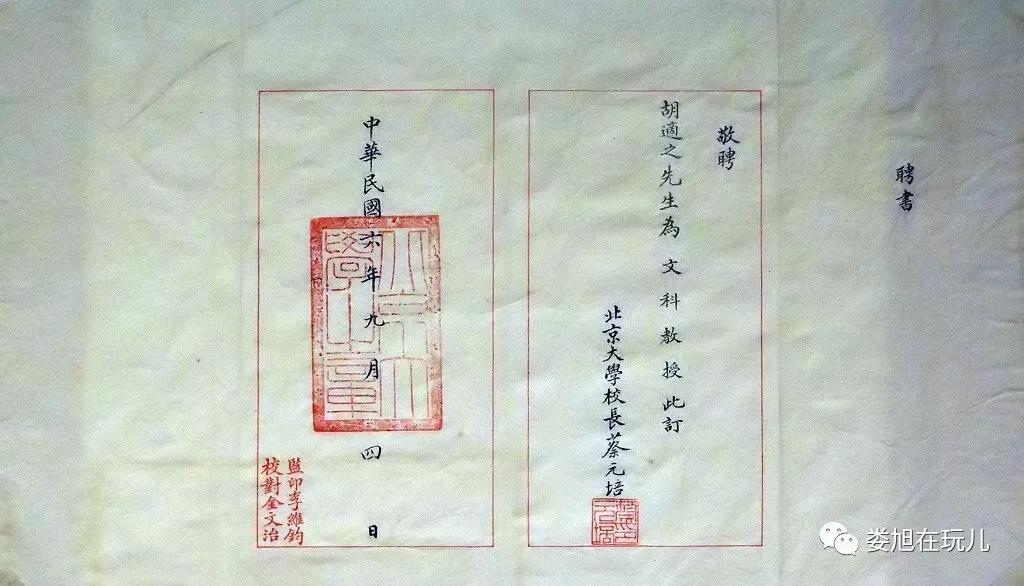 聘書
敬聘
胡適之先生為文科教授此訂
北京大學校長蔡元培
中華民國六年九月四日
北京大
學之章
監印李維鈞
校對金文治
娄旭在玩儿